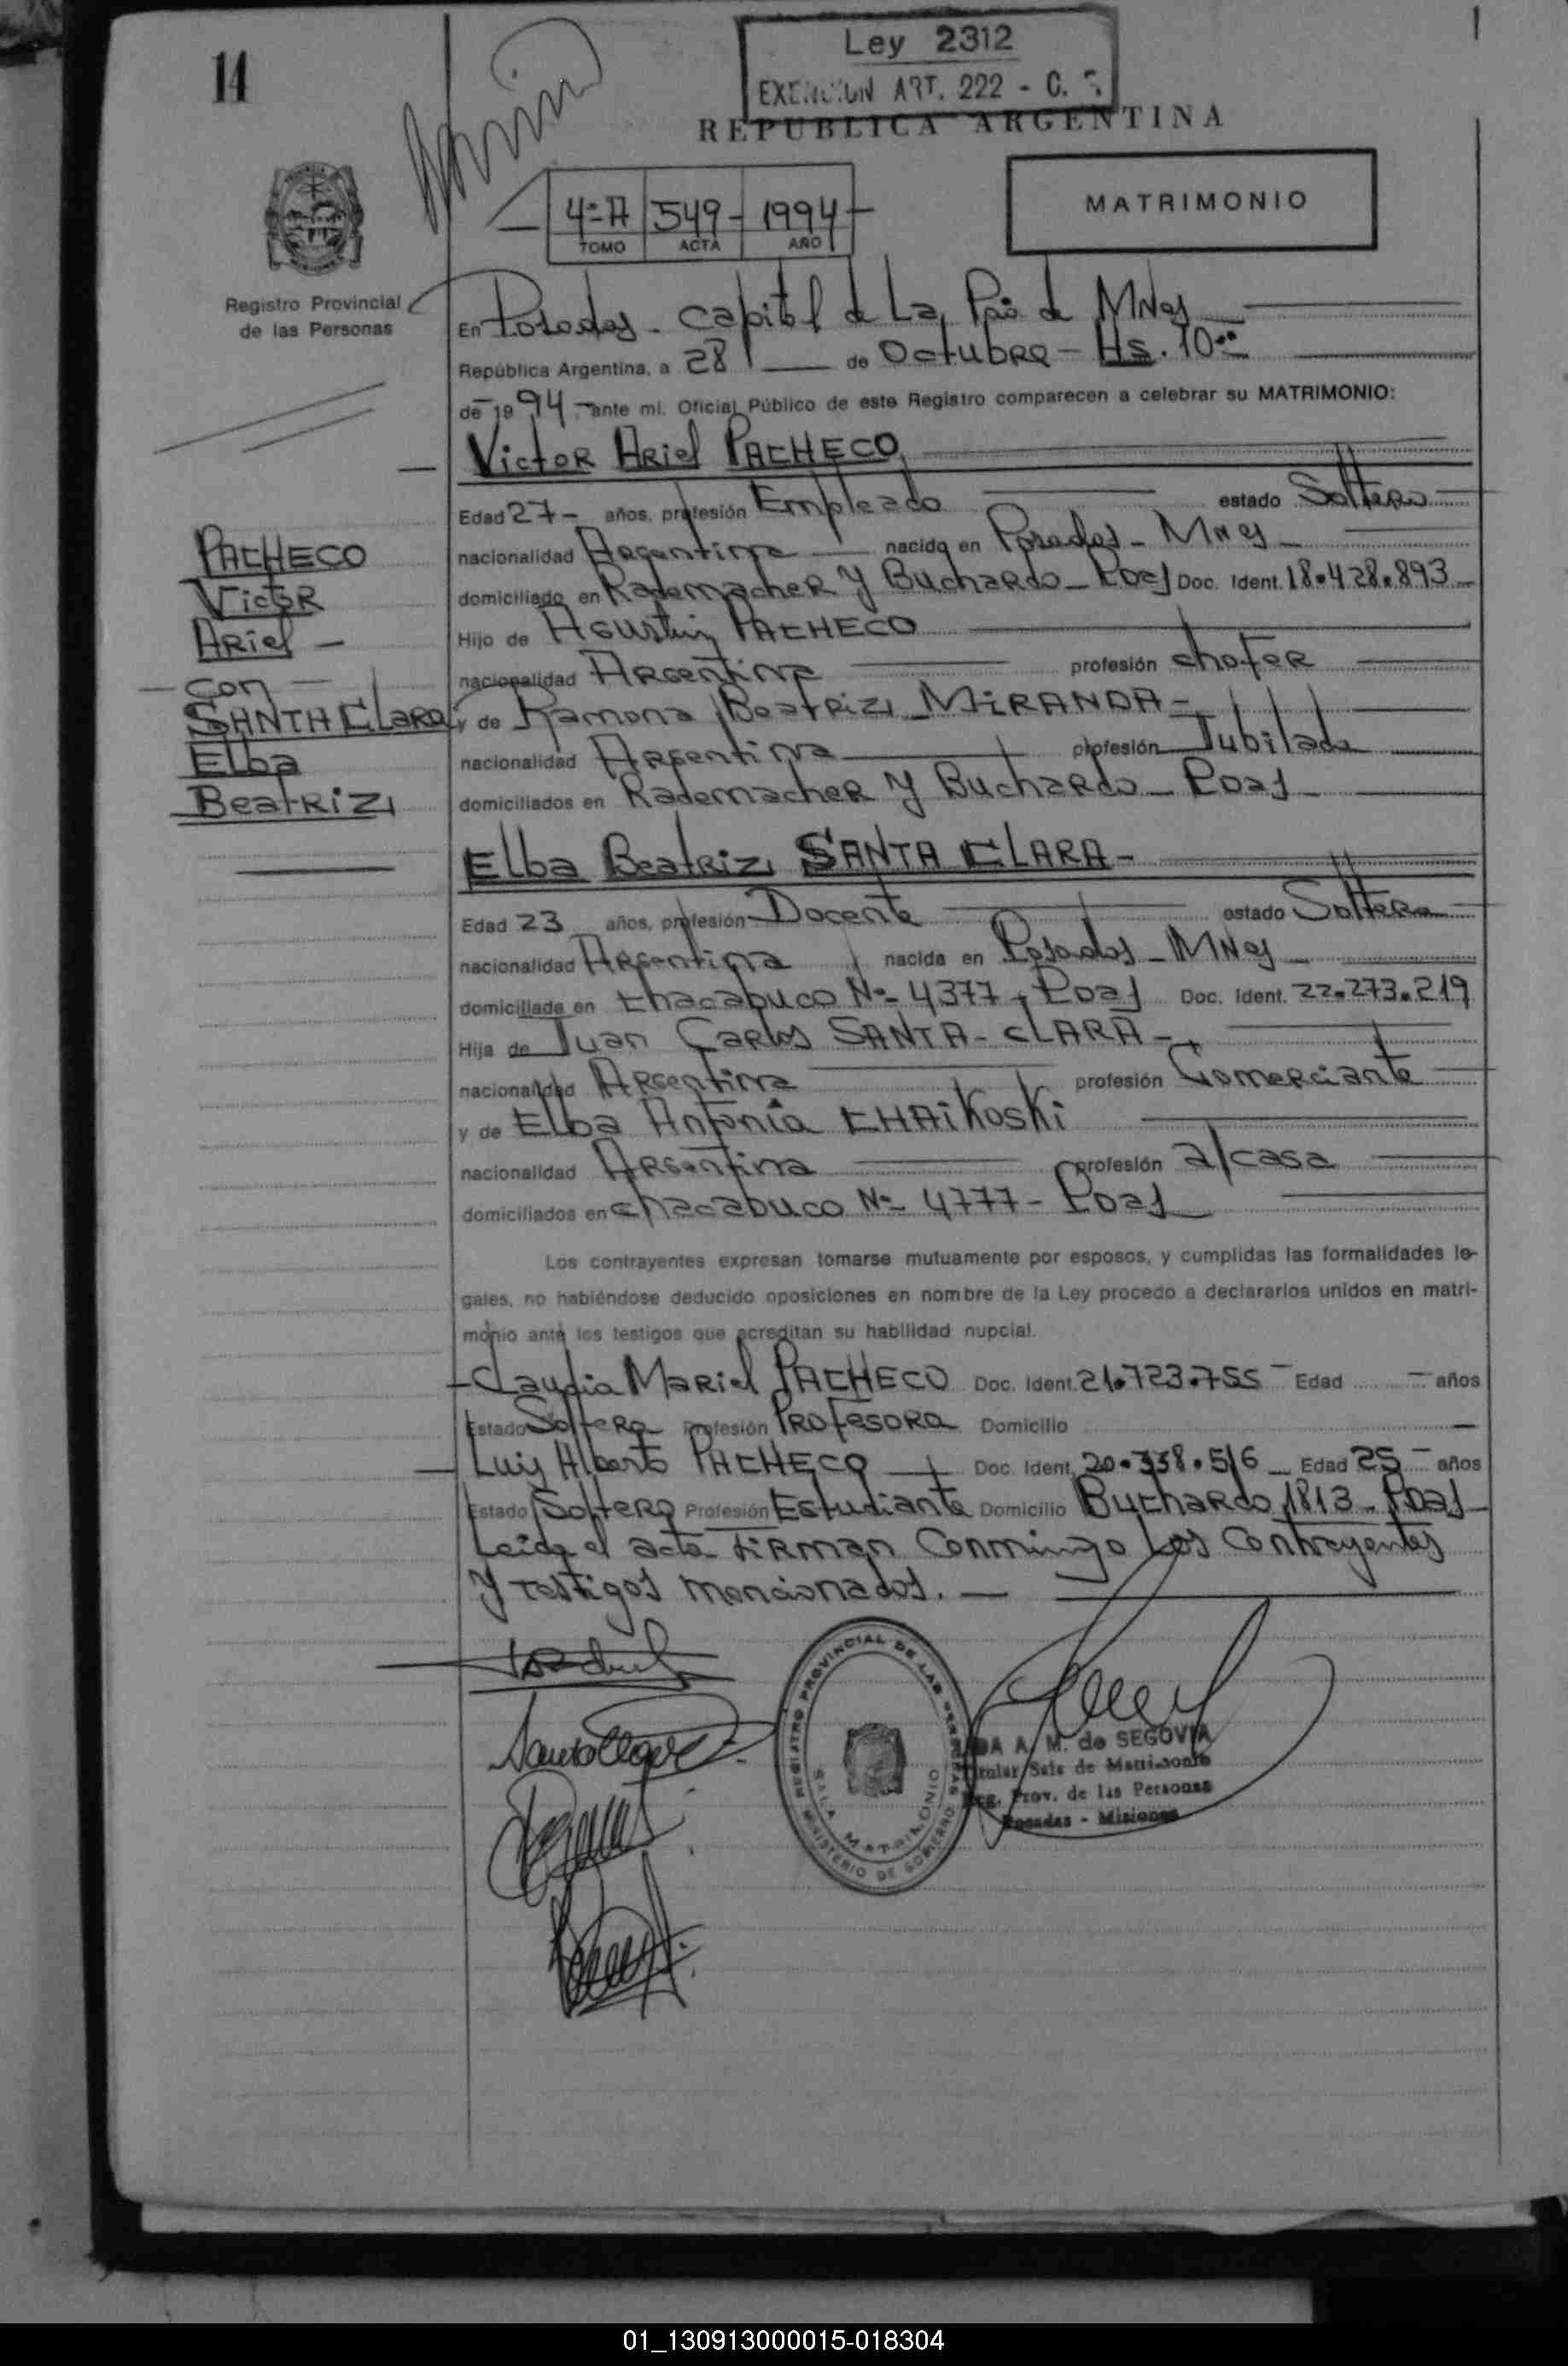 14
Ley 2312
EXENCION ART. 222 - C.
REPUBLICA ARGENTINA
4º A 549- 1994-
TOMO ACTA AÑO
MATRIMONIO
Registro Provincial
de las Personas
En Posadas - Capital de La Pcia de MNes
República Argentina, a 28 de Octubre - Hs. 10
de 19 94, ante mi. Oficial Público de este Registro comparecen a celebrar su MATRIMONIO:
Victor Ariel PACHECO
Edad 27 - años, profesión Empleado estado Soltero
nacionalidad Argentina nacido en Posadas - MNes
domiciliado en Rademacher y Buchardo - Pdas Doc. Ident. 18.428.893
Hijo de Agustin PACHECO
nacionalidad Argentina profesión chofer
y de Ramona Beatriz MIRANDA -
nacionalidad Argentina profesión Jubilada
domiciliados en Rademacher y Buchardo - Pdas -
PACHECO
Victor
Ariel -
- con -
SANTA CLARA
Elba
Beatriz
Elba Beatriz SANTA CLARA -
Edad 23 años, profesión Docente estado Soltera
nacionalidad Argentina nacida en Posadas - MNes -
domiciliada en Chacabuco Nº 4377 - Pdas Doc. Ident. 22.273.219
Hija de Juan Carlos SANTA - CLARA -
nacionalidad Argentina profesión Comerciante
y de Elba Antonia CHAiKosKi
nacionalidad Argentina profesión a/casa
domiciliados en Chacabuco Nº 4777 - Pdas
Los contrayentes expresan tomarse mutuamente por esposos, y cumplidas las formalidades le-
gales, no habiéndose deducido oposiciones en nombre de la Ley procedo a declararlos unidos en matri-
monio ante los testigos que acreditan su habilidad nupcial.
Claudia Mariel PACHECO Doc. Ident. 21.723.755 - Edad - años
Estado Soltera Profesión Profesora Domicilio -
Luis Alberto PACHECO Doc. Ident. 20.338.516 Edad 25 - años
Estado Soltero Profesión Estudiante Domicilio Buchardo 1813 - Pdas
Leida el acta firman Conmingo Los Contrayentes
y testigos mencionados. -
REGISTRO PROVINCIAL DE LAS PERSONAS
SALA MATRIMONIO
MINISTERIO DE GOBIERNO
A. M. de SEGOVIA
Titular Sala de Matrimonio
Reg. Prov. de las Personas
Posadas - Misiones
01_130913000015-018304